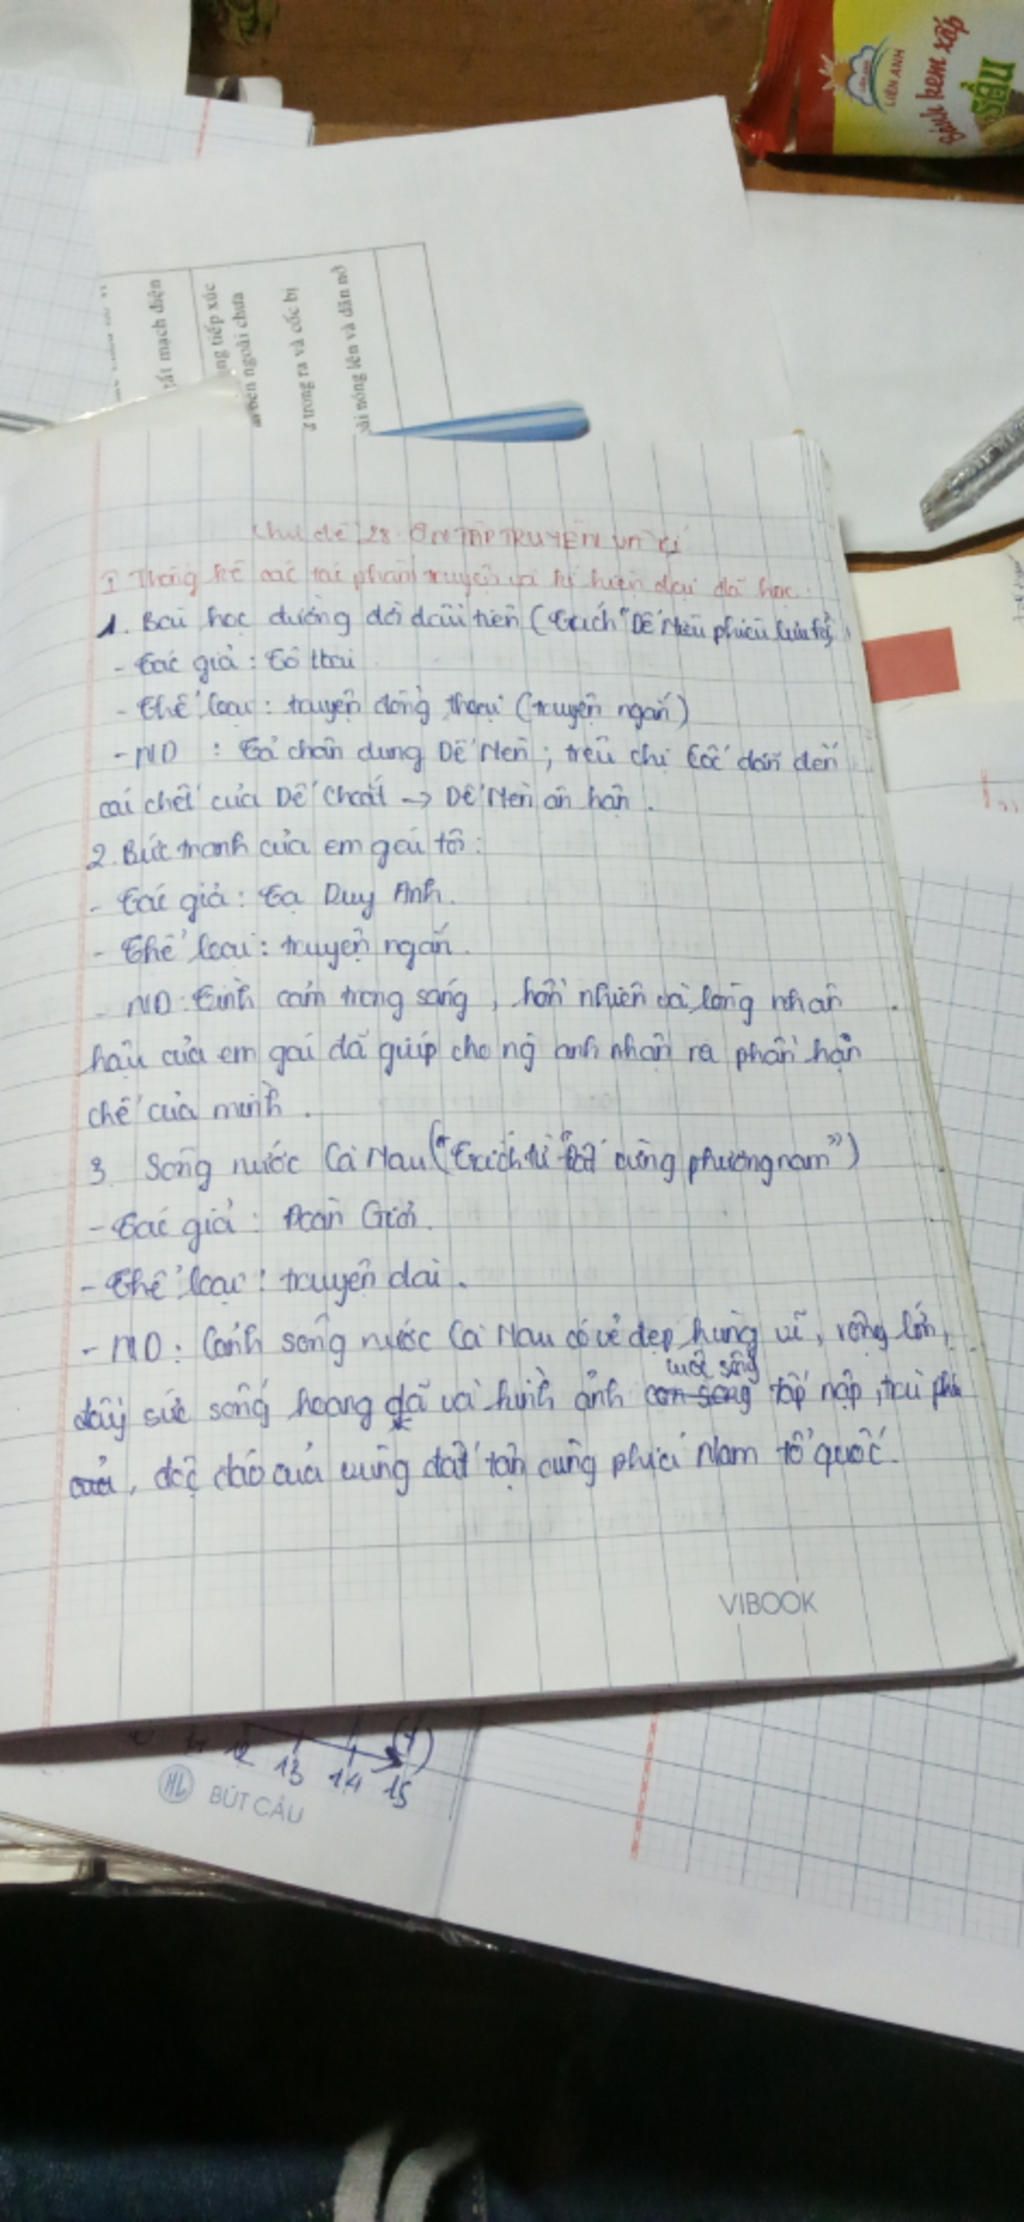 LIÊN ANH
Bánh kem xốp
tắt mạch điện
ng tiếp xúc
bên ngoài chưa
trong ra và cốc bị
ài nóng lên và dãn nở
Chủ đề 28. ÔN TẬP TRUYỆN VÀ KÍ
I Thống kê các tác phẩm truyện và kí hiện đại đã học.
1. Bài học đường đời đầu tiên (Trích "Dế Mèn phiêu lưu kí"
- Tác giả: Tô Hoài
- Thể loại: truyện đồng thoại (truyện ngắn)
- ND : Tả chân dung Dế Mèn; trêu chị Cốc dẫn đến
cái chết của Dế Choắt → Dế Mèn ân hận.
2. Bức tranh của em gái tôi:
- Tác giả: Tạ Duy Anh.
- Thể loại: truyện ngắn.
- ND: Tình cảm trong sáng, hồn nhiên và lòng nhân
hậu của em gái đã giúp cho ng anh nhận ra phần hạn
chế của mình.
3. Sông nước Cà Mau ("Trích từ "Đất rừng phương nam")
- Tác giả: Đoàn Giỏi.
- Thể loại: truyện dài.
- ND: Cảnh sông nước Cà Mau có vẻ đẹp hùng vĩ, rộng lớn,
đầy sức sống hoang dã và hình ảnh cuộc sống tấp nập, trù phú
, độc đáo của vùng đất tận cùng phía Nam tổ quốc.
VIBOOK
12 13 14 15
HL BÚT CẦU